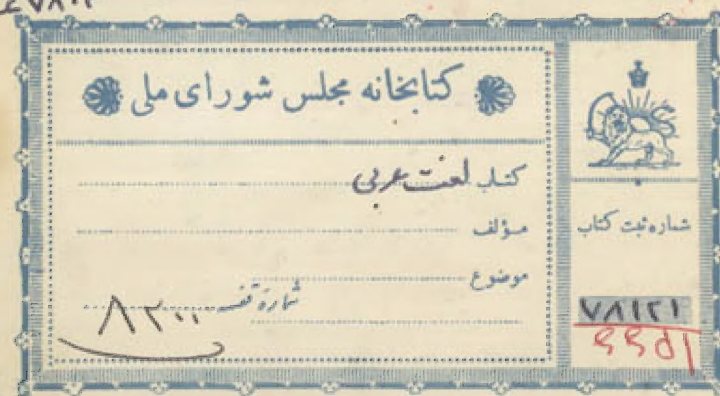 کتابخانه مجلس شورای ملی
کتاب لغت عربی
مؤلف
موضوع
شمارهٔ قفسه
شماره ثبت کتاب
۷۸۱۲۱